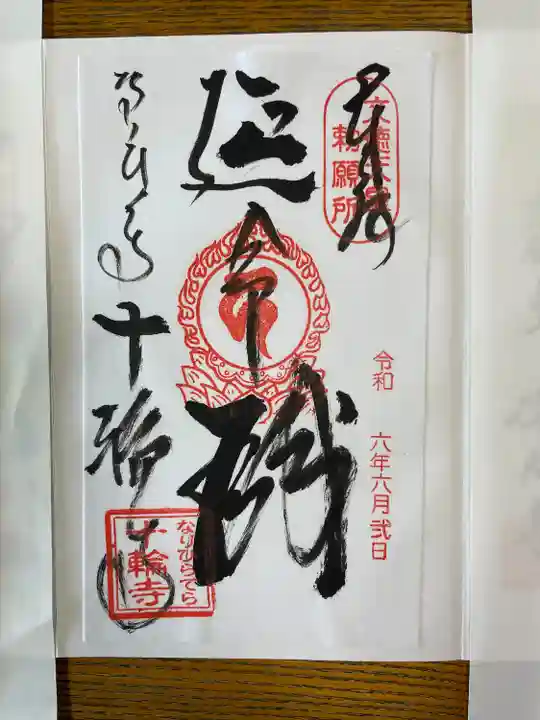 奉拝
文徳天皇
勅願所
令和 六年六月弐日
延命殿
なりひら寺
十輪寺
なりひらでら
十輪寺